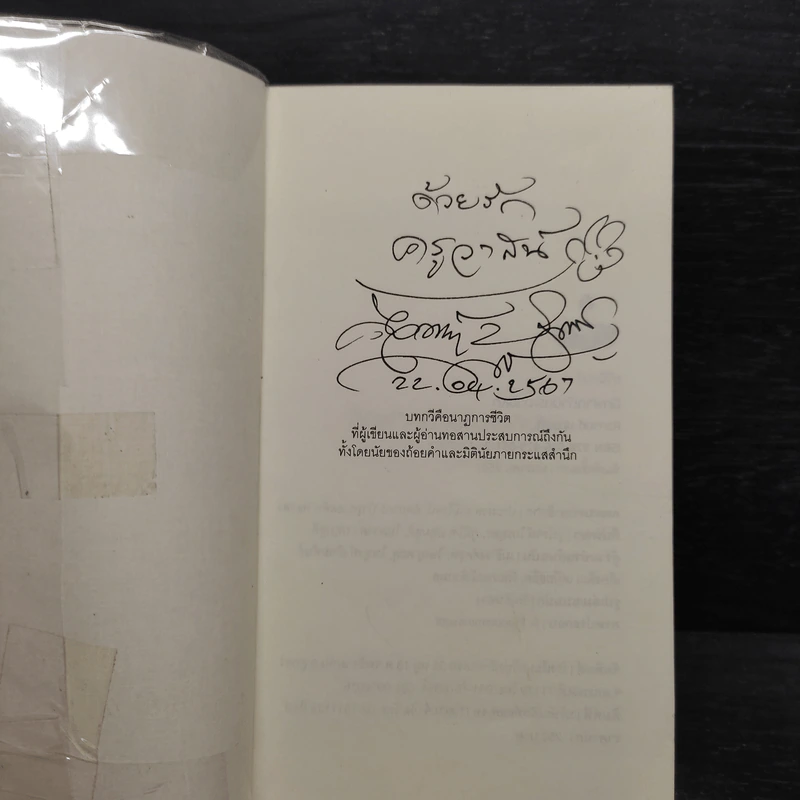 ด้วยรัก
ครูวาสินี
22.04.2567
บทกวีคือนาฏการชีวิต
ที่ผู้เขียนและผู้อ่านทอสานประสบการณ์ถึงกัน
ทั้งโดยนัยของถ้อยคำและมิตินัยภายกระแสสำนึก